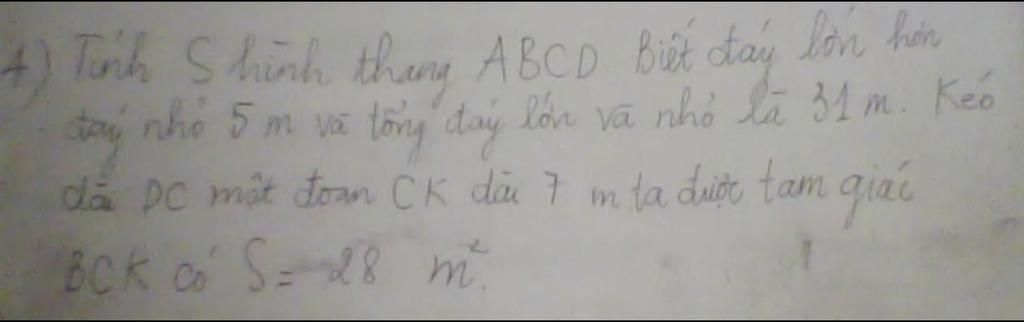 4) Tính S hình thang ABCD. Biết đáy lớn hơn
đáy nhỏ 5 m và tổng đáy lớn và nhỏ là 31 m. Kéo
dài DC một đoạn CK dài 7 m ta được tam giác
BCK có S = 28 m².